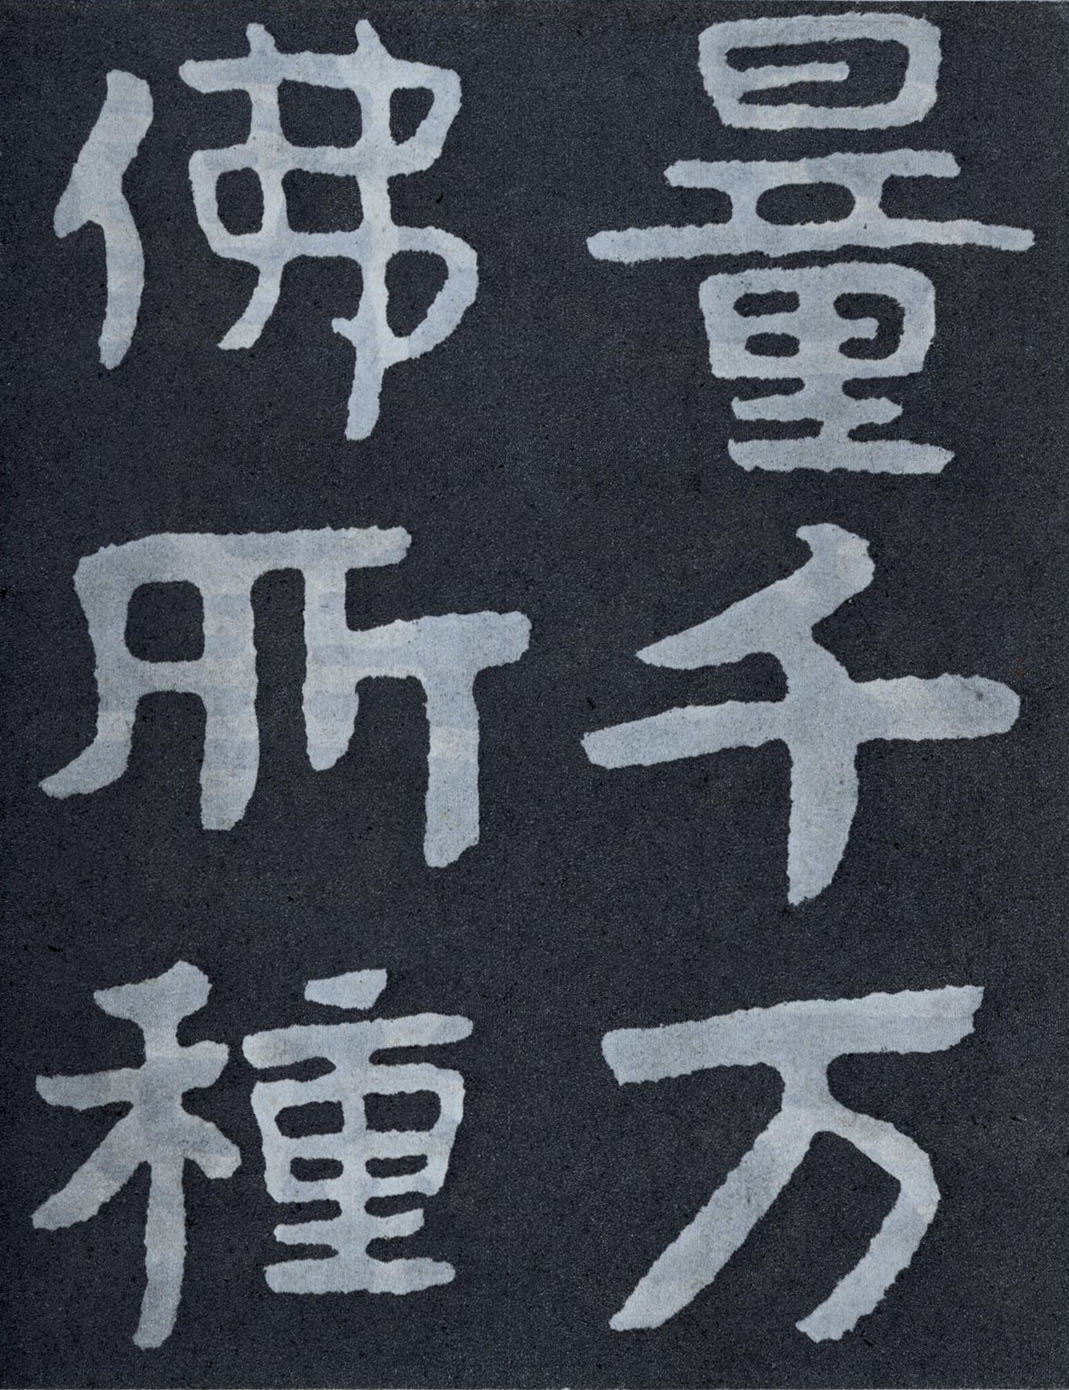 量千万
佛所種